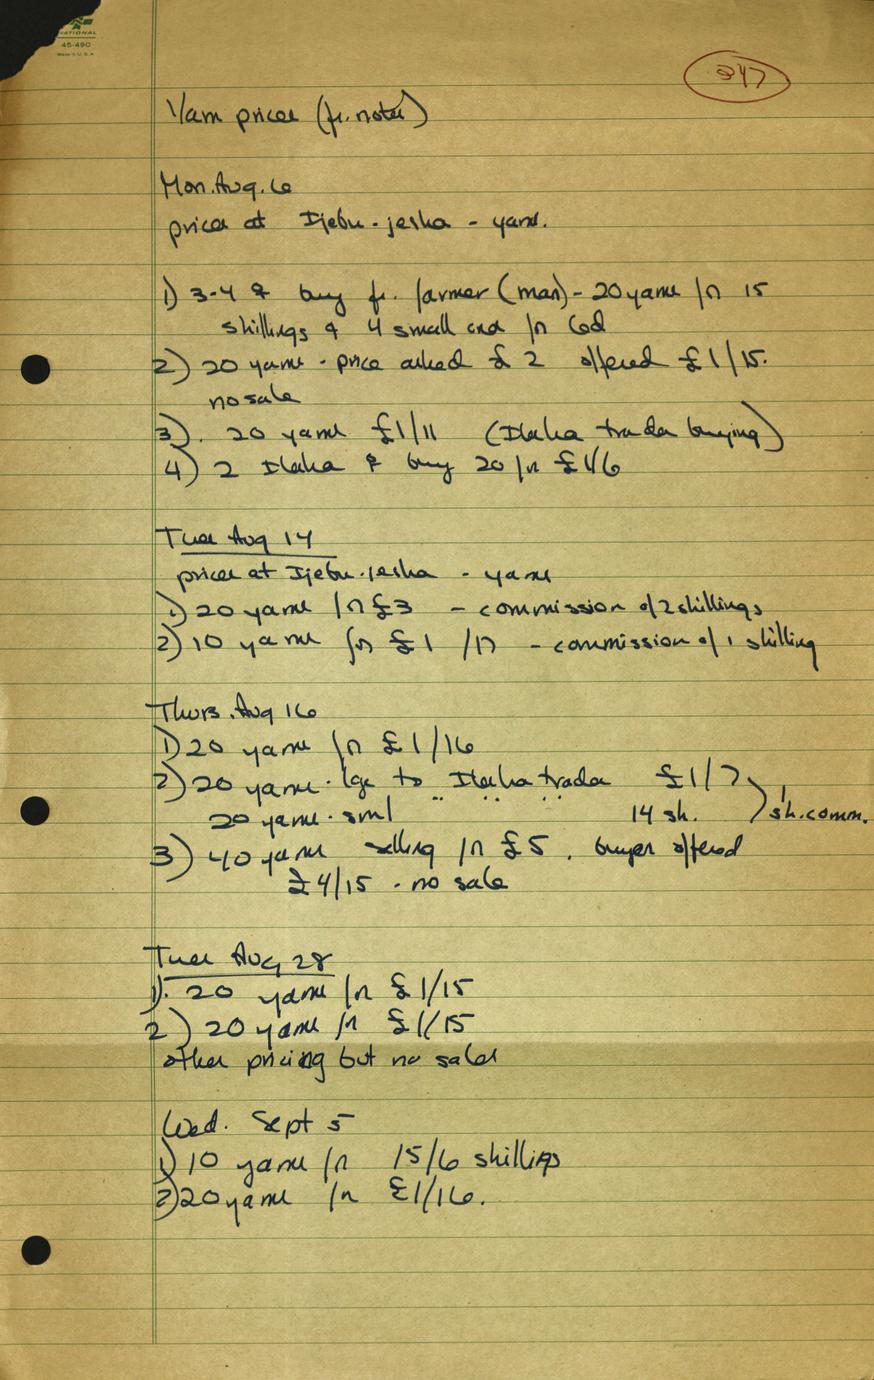 NATIONAL
45-490
Made in U.S.A.
247
Yam prices (fr. notes)
Mon. Aug. 6
prices at Ijebu-jesha - yams.
1) 3-4 ♀ buy fr. farmer (man) - 20 yams for 15
shillings & 4 small and for 6d
2) 20 yams - price asked £2 offered £1/15.
no sale
3). 20 yams £1/11 (Ilesha trader buying)
4) 2 Ilesha ♀ buy 20 for £1/6
Tues Aug 14
prices at Ijebu-jesha - yams
1) 20 yams for £3 - commission of 2 shillings
2) 10 yams for £1 /17 - commission of 1 shilling
Thurs. Aug 16
1) 20 yams for £1/16
2) 20 yams - lge to Ilesha trader £1/7
20 yams - sml " " " 14 sh. ) 1 sh. comm.
3) 40 yams selling for £5. buyer offered
£4/15 - no sale
Tues Aug 28
1). 20 yams for £1/15
2) 20 yams for £1/15
other pricing but no sales
Wed. Sept 5
1) 10 yams for 15/6 shillings
2) 20 yams for £1/16.